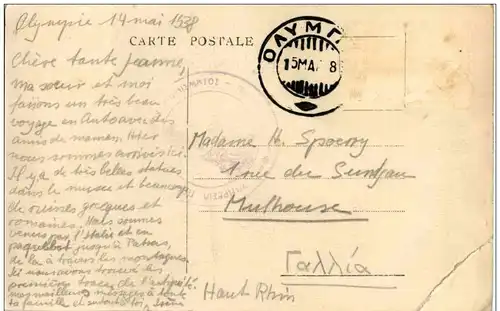 Olympie 14 mai 1938
CARTE POSTALE
ΟΛΥΜΠ
15 ΜΑ. 8
Chère tante Jeanne,
Ma sœur et moi
faisons un très beau
voyage en avec des
amis de maman. Hier
nous sommes arrivés ici.
Il y a de très belles statues
dans le musée et beaucoup
de ruines grecques et
romaines. Nous sommes
venus par l'Italie et en
paquebot jusqu'à Patras,
de là à travers les montagnes.
Ici nous avons trouvé les
premières traces de l'antiquité.
mes meilleurs messages à toute
ta famille et surtout à toi,
Madame H. Spoerry
1 rue du Sundgau
Mulhouse
Γαλλία
Haut Rhin